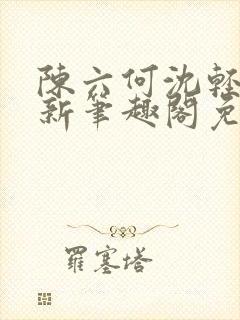 陳六何沈輕
新筆趣閣免
羅塞塔